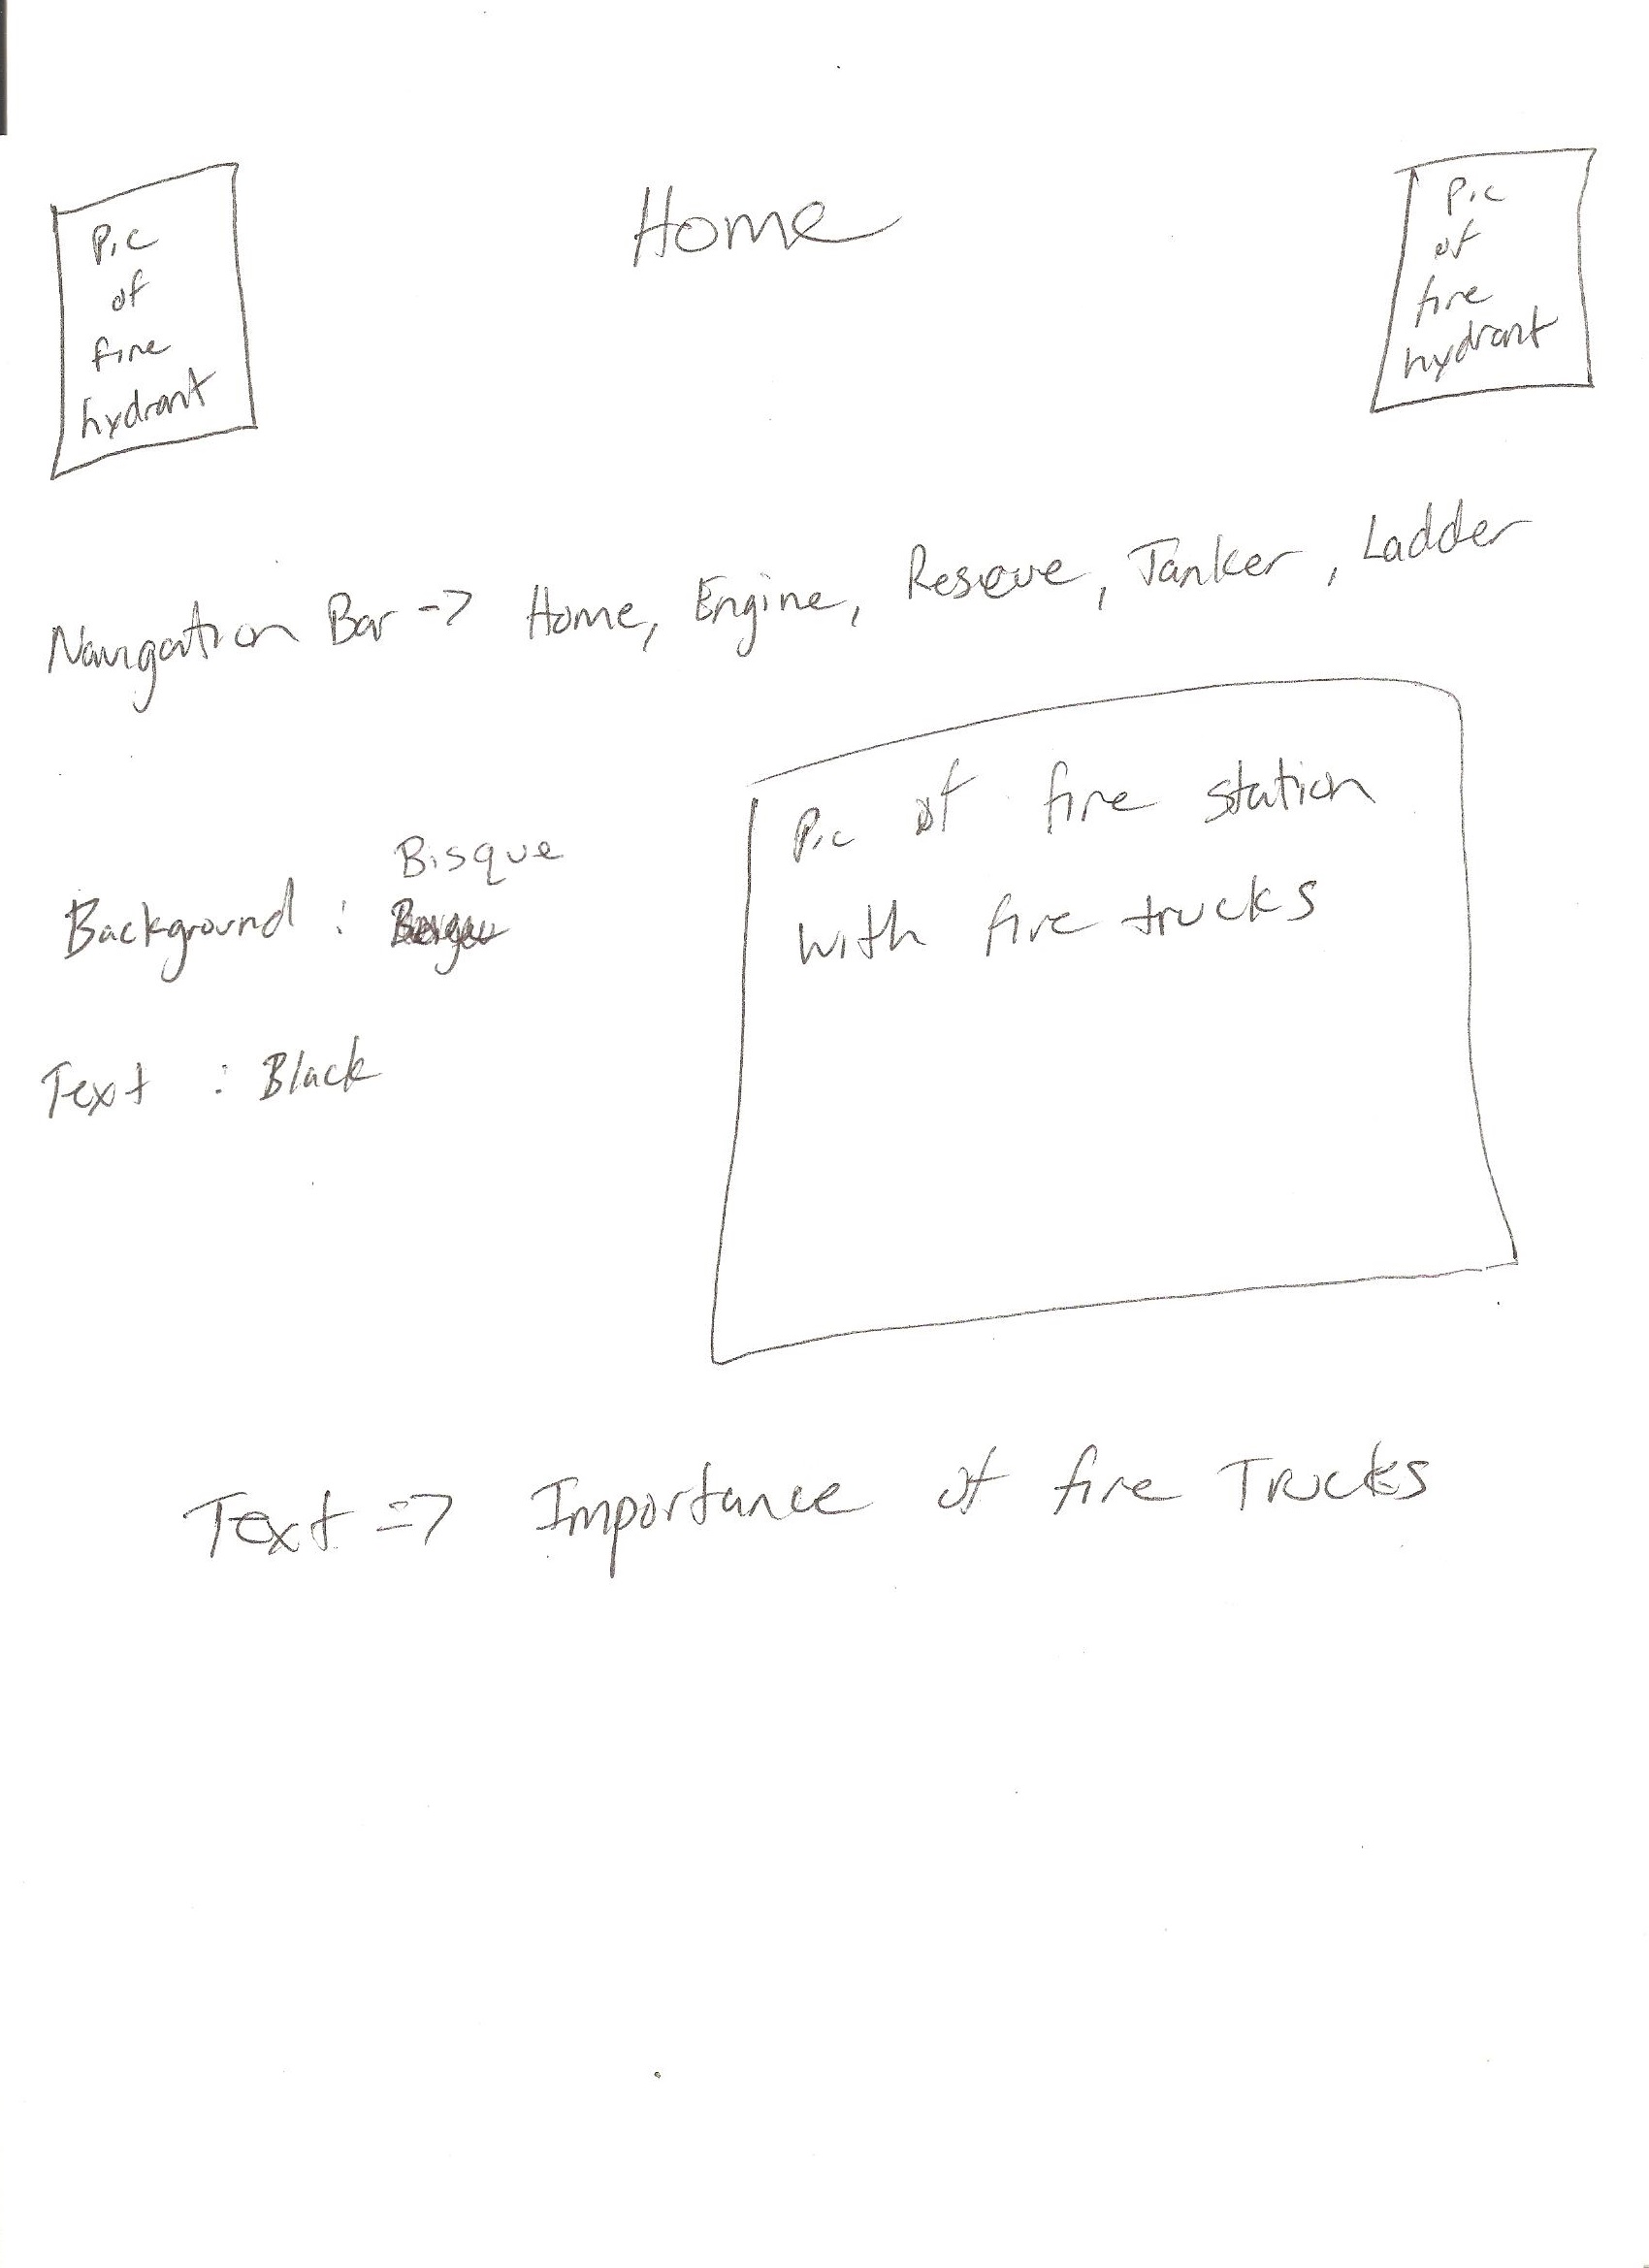 Home
Pic
of
fire
hydrant
Pic
of
fire
hydrant
Navigation Bar -> Home, Engine, Rescue, Tanker, Ladder
Bisque
Background :
Text : Black
Pic of fire station
with fire trucks
Text => Importance of fire Trucks